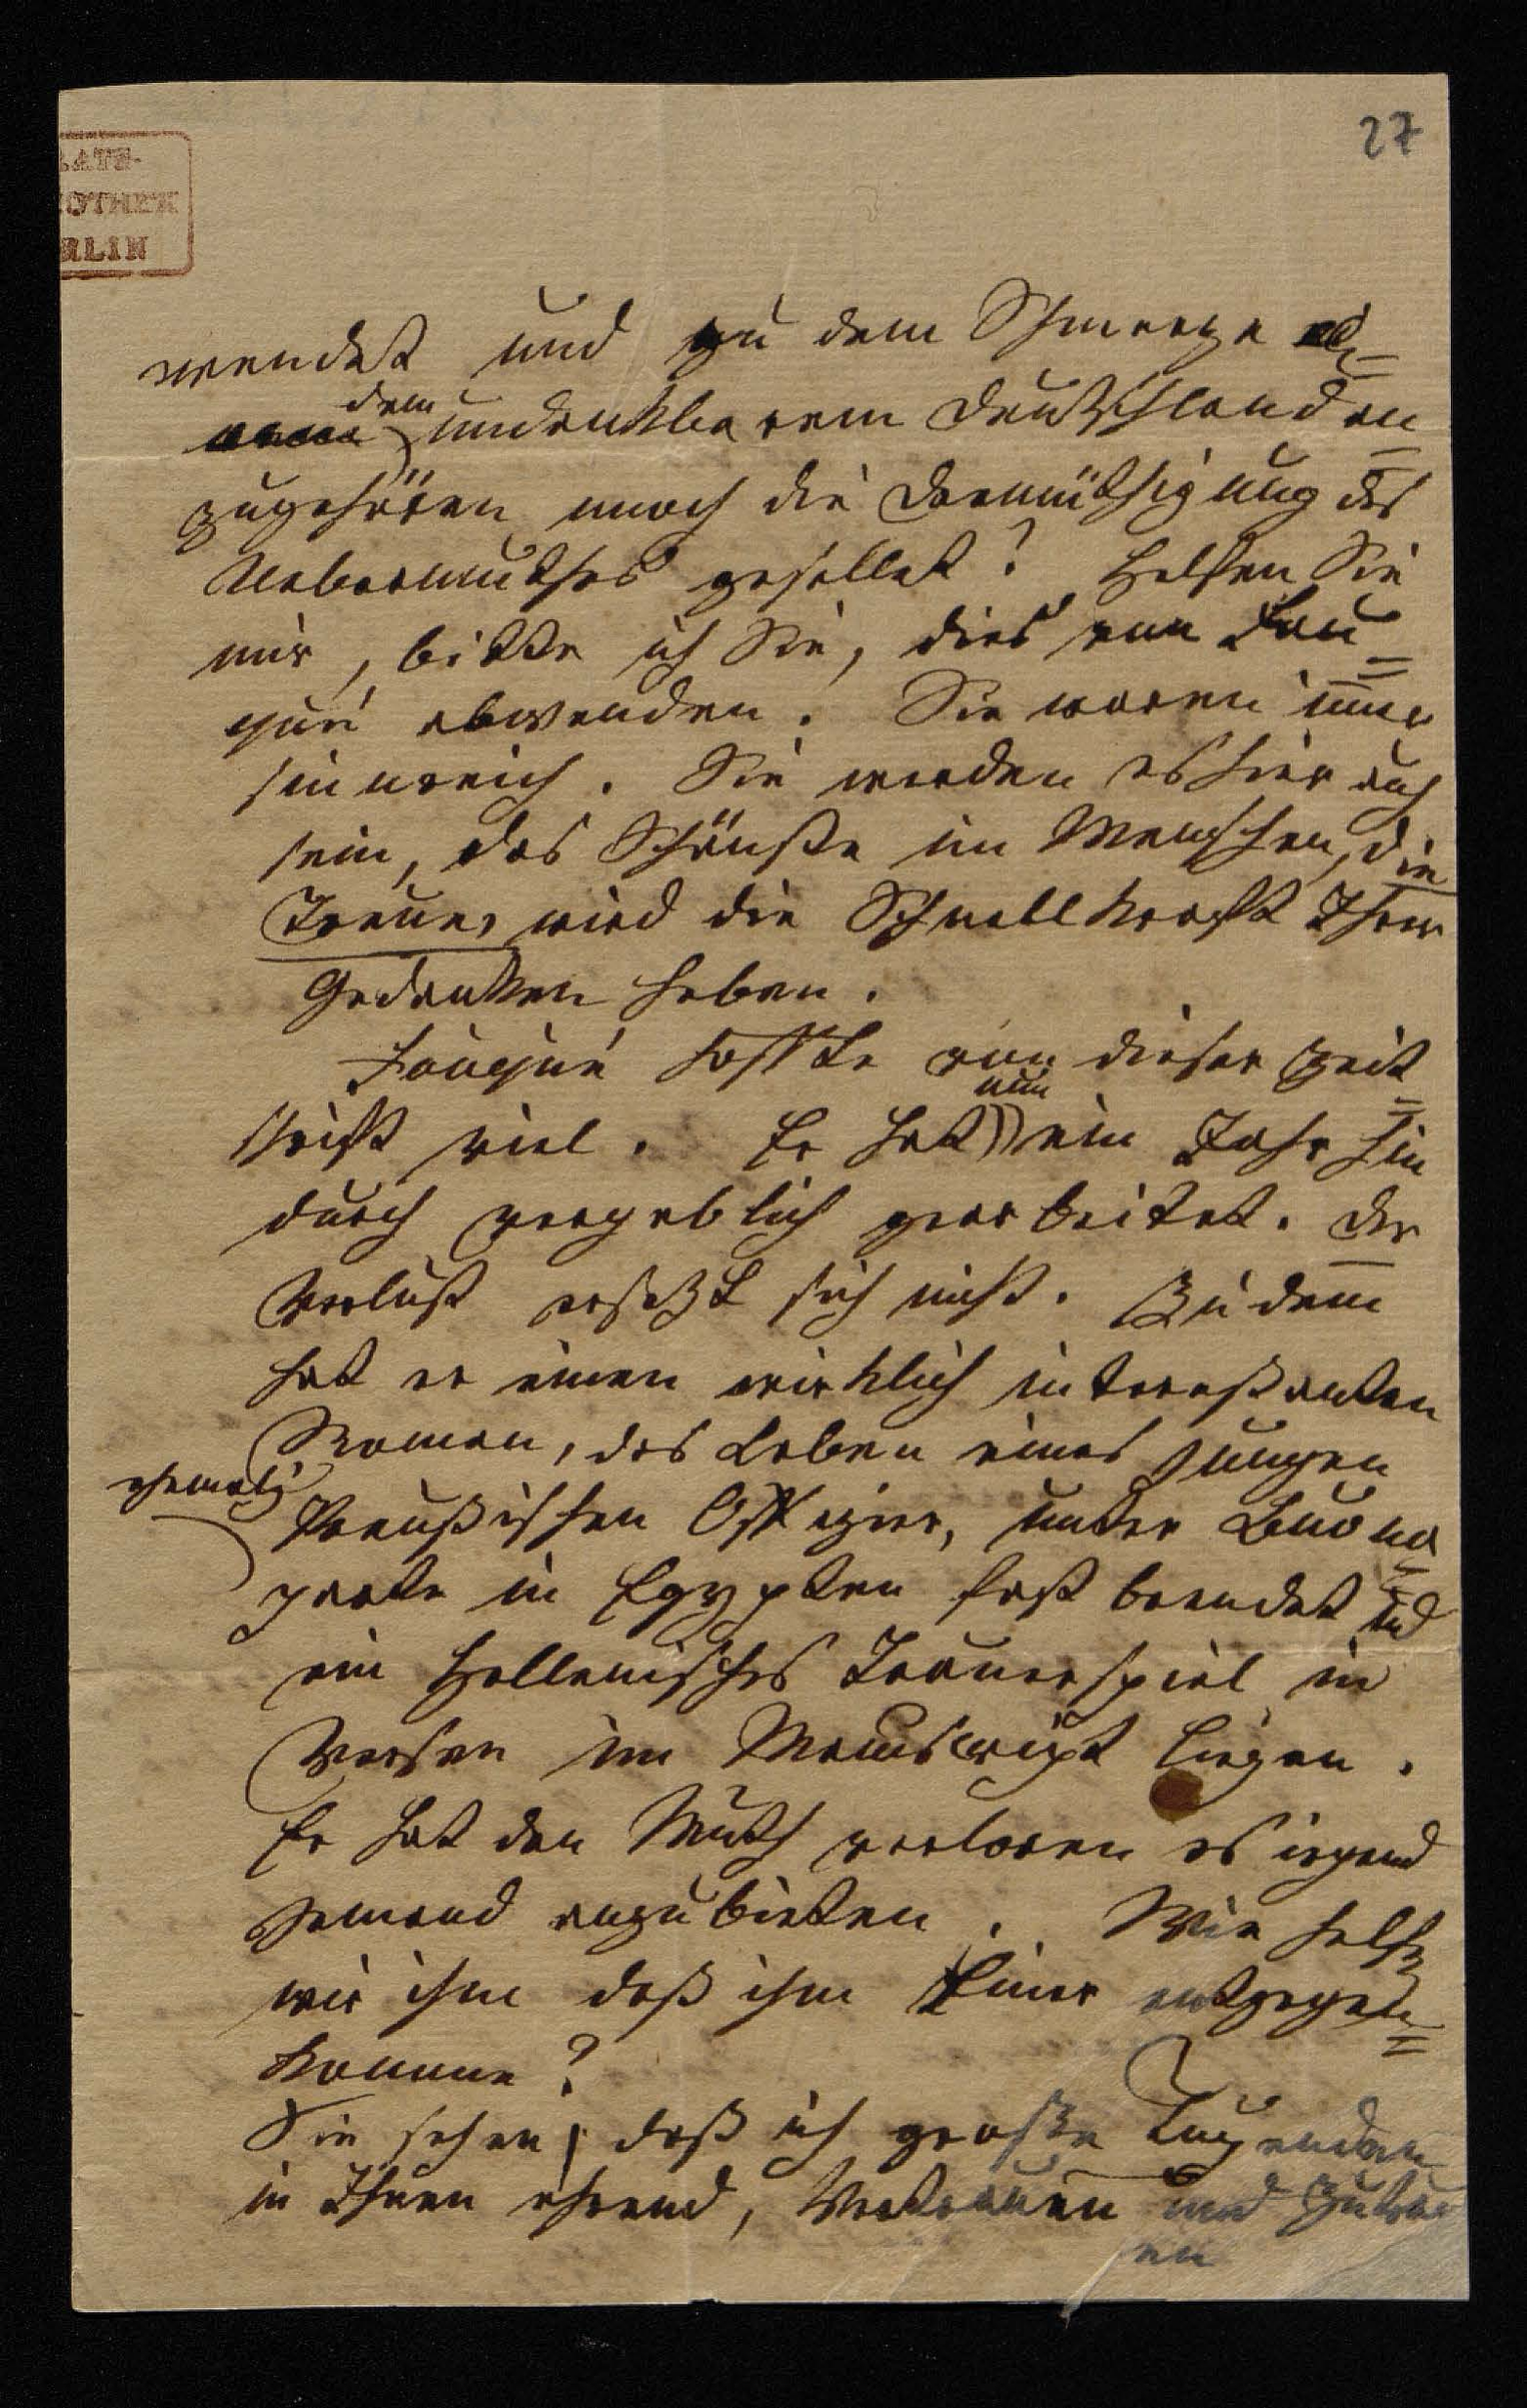 27
wendet und zu dem Schmerze
dem
undankbarem Deutschland an=
zugehören noch die Demüthigung des
Uebermuthes gesellet? Helfen Sie
mir, bitte ich Sie, dies von Fou=
qué abwenden. Sie waren immer
sinnreich. Sie werden es hier auch
sein, das Schönste im Menschen, die
Treue, wird die Schnellkraft Ihrer
Gedanken heben.
Fouqué hoffte von dieser Zeit=
schrift viel. Er hat ein Jahr hin
nun
durch vergeblich gearbeitet. Der
Verlust ersetzt sich nicht. Zudem
hat er einen wirklich interessanten
Roman, das Leben eines jungen
ehemalig
Preußischen Offizier, unter Buona=
parte in Egypten fast beendet und
ein Hellenisches Trauerspiel in
Versen im Manuscript liegen.
Er hat den Muth verloren es irgend
jemand anzubieten. Wie helfen
wir ihm daß ihm Einer entgegen=
komme?
Sie sehen, daß ich große Tugenden
in Ihnen ehrend, Vertrauen und Zutrau
en